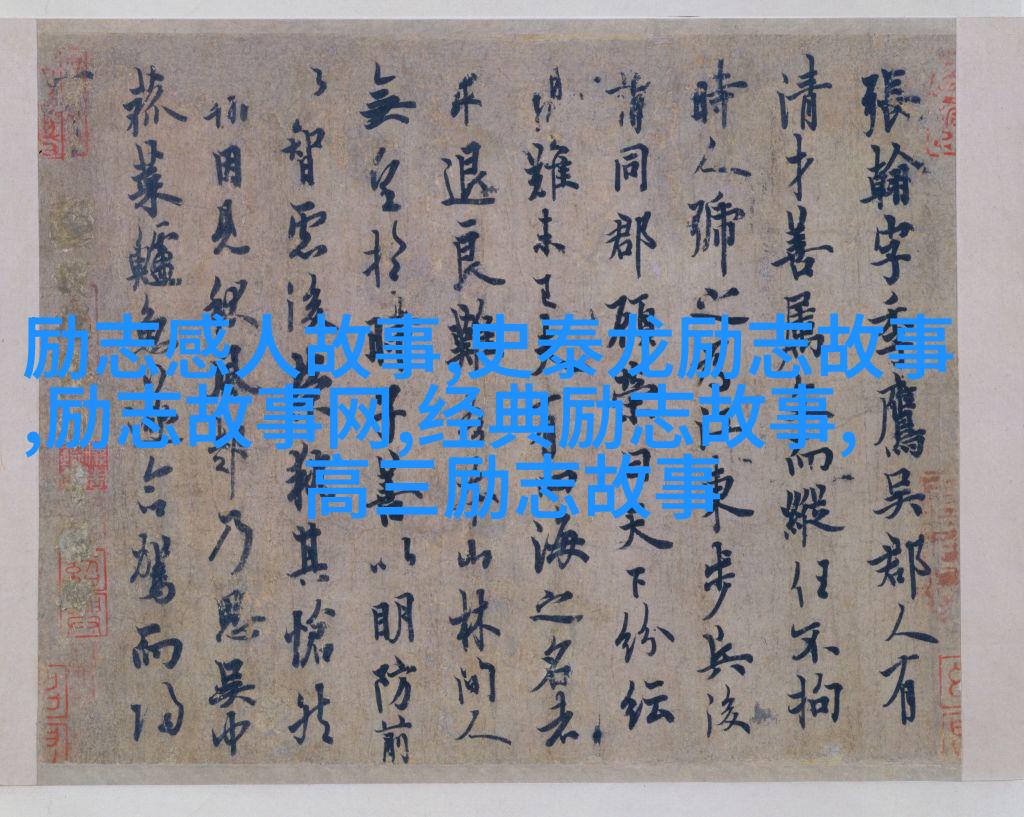 張翰字季鷹吳郡人有
清才善屬而縱任不拘
時人號之為江東步兵後
同郡顧榮曰天下紛紜
難未已夫有四海之名者
求退良難吾本山林間人
無望於時子善以明防前
以智慮後榮執其愴然
翰因見秋風乃思吳中
菰菜鱸魚命駕而歸
励志感人故事,史泰龙励志故事
,励志故事网,经典励志故事,
高三励志故事